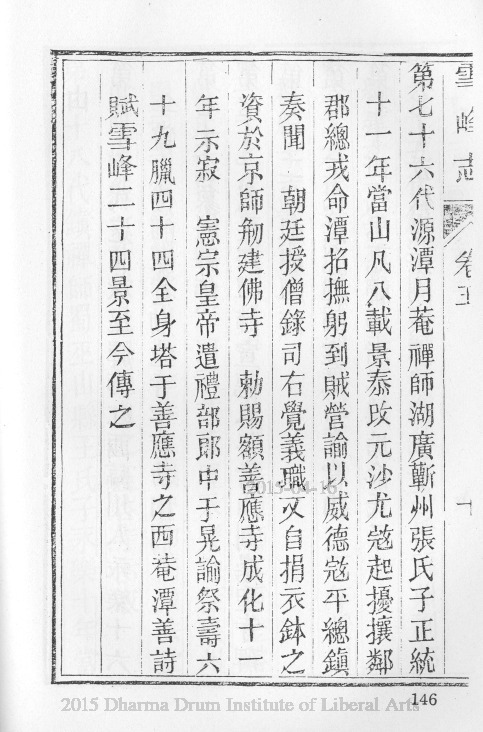 雪峰志
卷五
十
第七十六代源潭月菴禪師湖廣蘄州張氏子正統
十一年當山凡八載景泰攺元沙尤冦起擾攘鄰
郡總戎命潭招撫躬到賊營諭以威德冦平總鎮
奏聞 朝廷授僧錄司右覺義職又自捐衣鉢之
資於京師剏建佛寺 勅賜額善應寺成化十一
年示寂 憲宗皇帝遣禮部郎中于晃諭祭壽六
十九臘四十四全身塔于善應寺之西菴潭善詩
賦雪峰二十四景至今傳之
2015-04-16
146
2015 Dharma Drum Institute of Liberal Arts